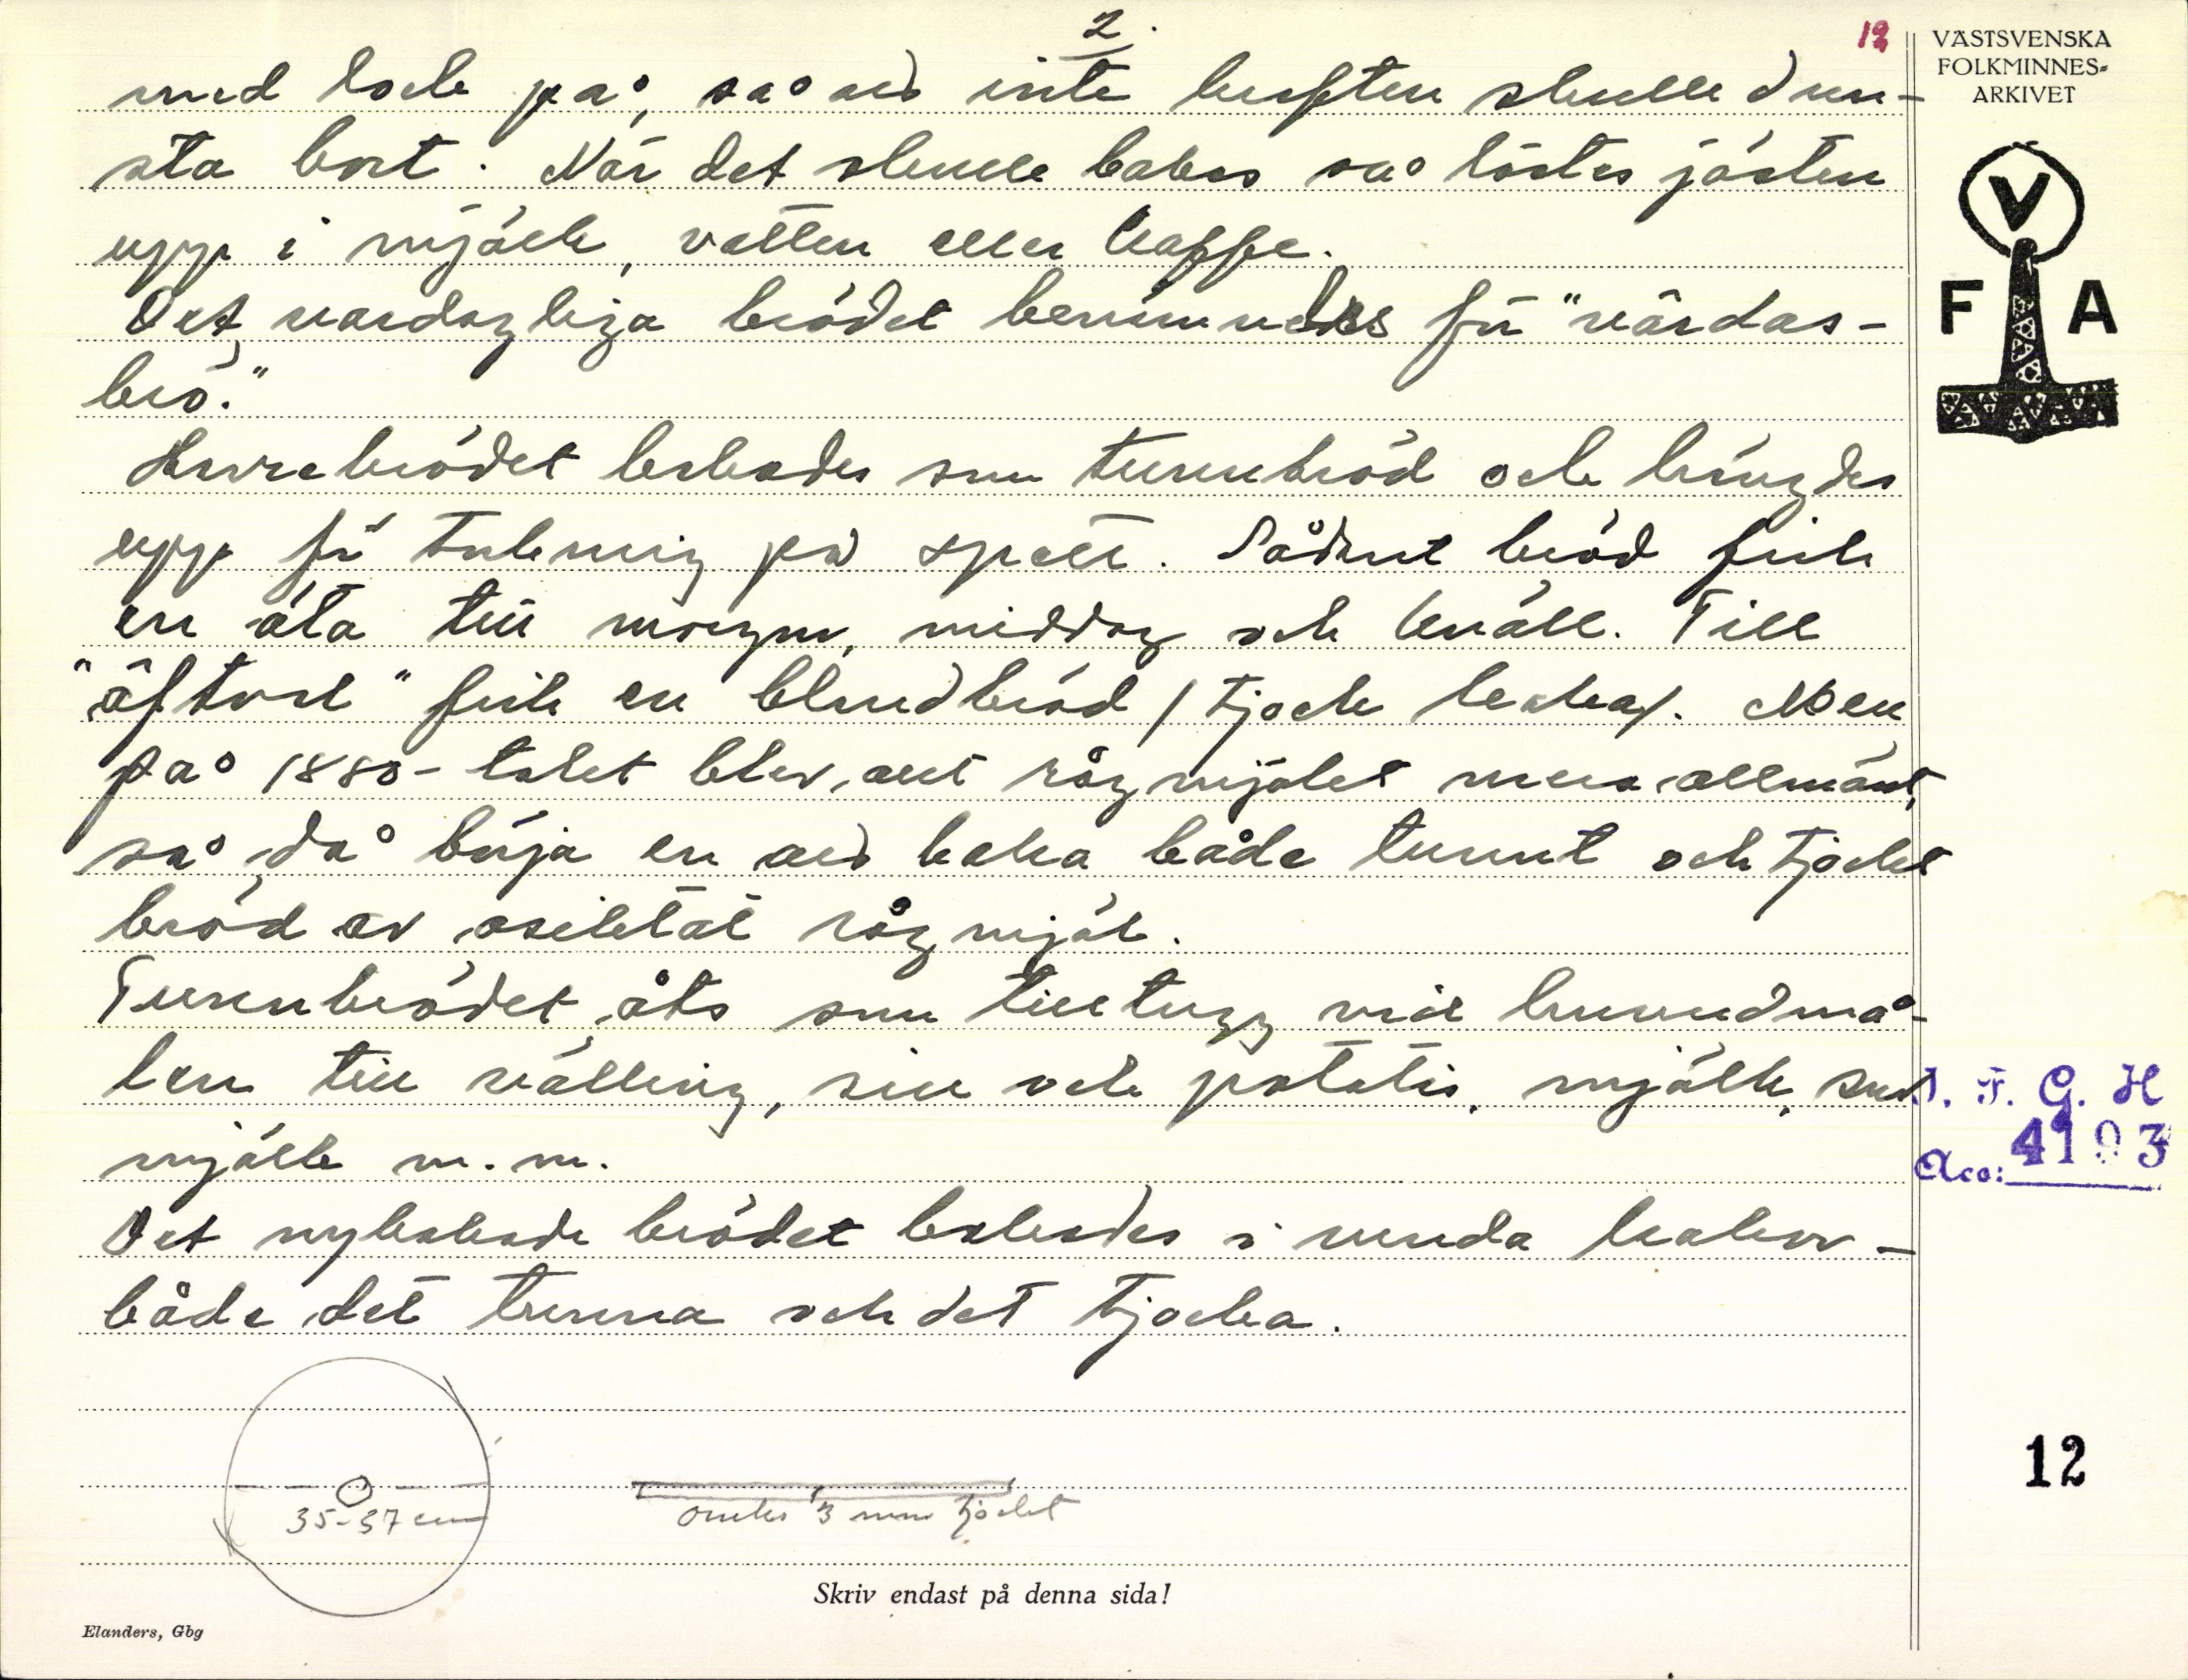 2.
12
VÄSTSVENSKA
FOLKMINNES-
ARKIVET
V
F A
med lock på, så att inte kraften skulle dun-
sta bort. När det skulle bakas så löstes jästen
upp i mjölk, vatten eller kaffe.
Det vardagliga brödet benämndes för "värdas-
brö."
Havrebrödet bakades som tunnbröd och hängdes
upp för torkning på spett. Sådant bröd fick
en äta till morgon, middag och kväll. Till
"äftorl" fick en blandbröd / tjock kaka/. Men
på 1880-talet blev att rågmjölet mera allmänt,
så då börja en att baka både tunnt och tjockt
bröd av osiktat rågmjöl.
Tunnbrödet åts som tilltugg vid huvudmå-
len till välling, sill och potatis, mjölk, sur
mjölk m.m.
Det nybakade brödet bakades i runda kakor -
både det tunna och det tjocka.
I. F. G. H
Acc: 4103
12
35-37 cm
omkr 3 mm tjockt
Skriv endast på denna sida!
Elanders, Gbg